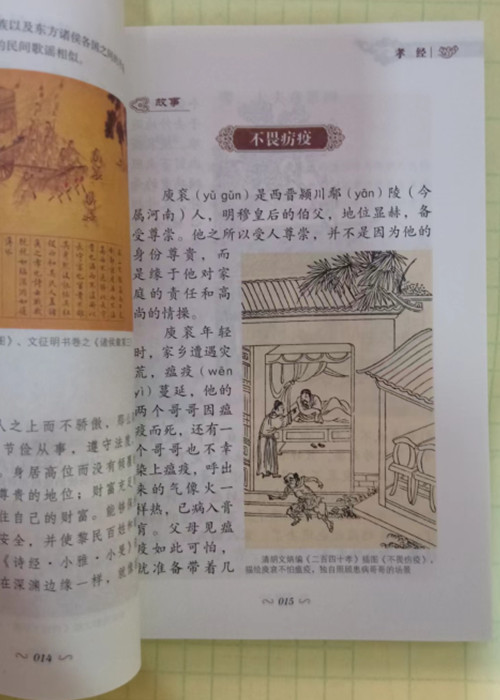 族以及东方诸侯各国之间的
的民间歌谣相似。
图》、文征明书卷之《诸侯章第三
人之上而不骄傲，那么
节俭从事，遵守法度
。身居高位而没有倾覆
尊贵的地位；财富充足
住自己的财富。能够保
安全，并使黎民百姓和
《诗经·小雅·小旻》
在深渊边缘一样，就像
014
孝 经
故事
不畏疠疫
庾衮（yǔ gǔn）是西晋颍川鄢（yān）陵（今
属河南）人，明穆皇后的伯父，地位显赫，备
受尊崇。他之所以受人尊崇，并不是因为他的
身份尊贵，而
是缘于他对家
庭的责任和高
尚的情操。
庾衮年轻
时，家乡遭遇灾
荒，瘟疫（wēn
yì）蔓延，他的
两个哥哥因瘟
疫而死，还有一
个哥哥也不幸
染上瘟疫，呼出
来的气像火一
样热，已病入膏
肓。父母见瘟
疫如此可怕，
就准备带着几
清胡文炳编《二百四十孝》插图《不畏疠疫》，
描绘庾衮不怕瘟疫，独自照顾患病哥哥的场景
015